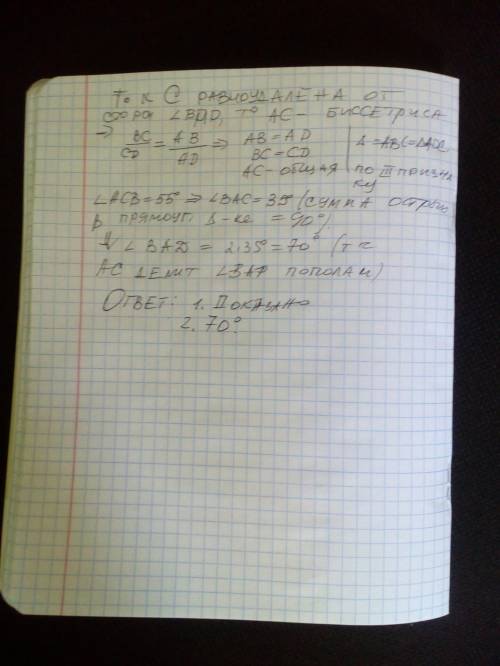 Т.к С равноудалена от
сторон ∠BAD, то AC- биссетриса
⇒ BC/CD = AB/AD ⇒ AB=AD | Δ=ABC=ΔADC
BC=CD
AC-общая по III призна
ку
∠ACB=55° ⇒ ∠BAC=35° (сумма острых
в прямоуг. Δ-ке = 90°)
⇓ ∠BAD = 2·35°=70° (т к
AC делит ∠BAD пополам)
Ответ: 1. Доказано
2. 70°.